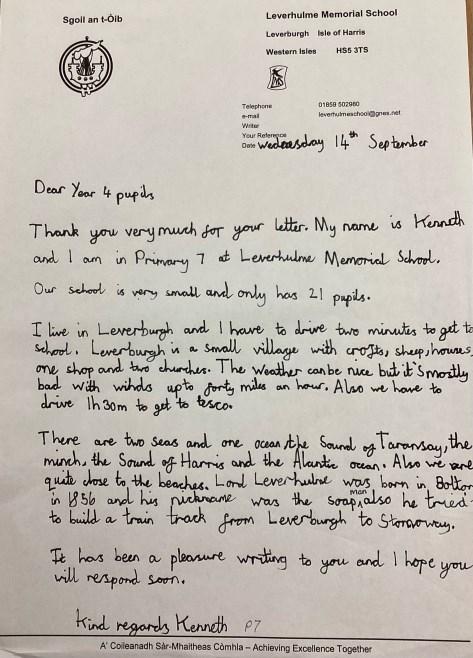 Sgoil an t-Òib
Leverhulme Memorial School
Leverburgh Isle of Harris
Western Isles HS5 3TS
Telephone 01859 502980
e-mail leverhulmeschool@gnes.net
Writer
Your Reference
Date Wednesday 14th September
Dear Year 4 pupils
Thank you very much for your letter. My name is Kenneth
and I am in Primary 7 at Leverhulme Memorial School.
Our school is very small and only has 21 pupils.
I live in Leverburgh and I have to drive two minutes to get to
school. Leverburgh is a small village with crofts, sheep, houses,
one shop and two churches. The weather can be nice but it's mostly
bad with winds upto forty miles an hour. Also we have to
drive 1h30m to get to tesco.
There are two seas and one ocean, the Sound of Taransay, the
minch, the Sound of Harris and the Alantic ocean. Also we are
quite close to the beaches. Lord Leverhulme was born in Bolton
in 1856 and his nickname was the soap man, also he tried
to build a train track from Leverburgh to Stornoway.
It has been a pleasure writing to you and I hope you
will respond soon.
Kind regards Kenneth P7
A' Coileanadh Sàr-Mhaitheas Còmhla – Achieving Excellence Together